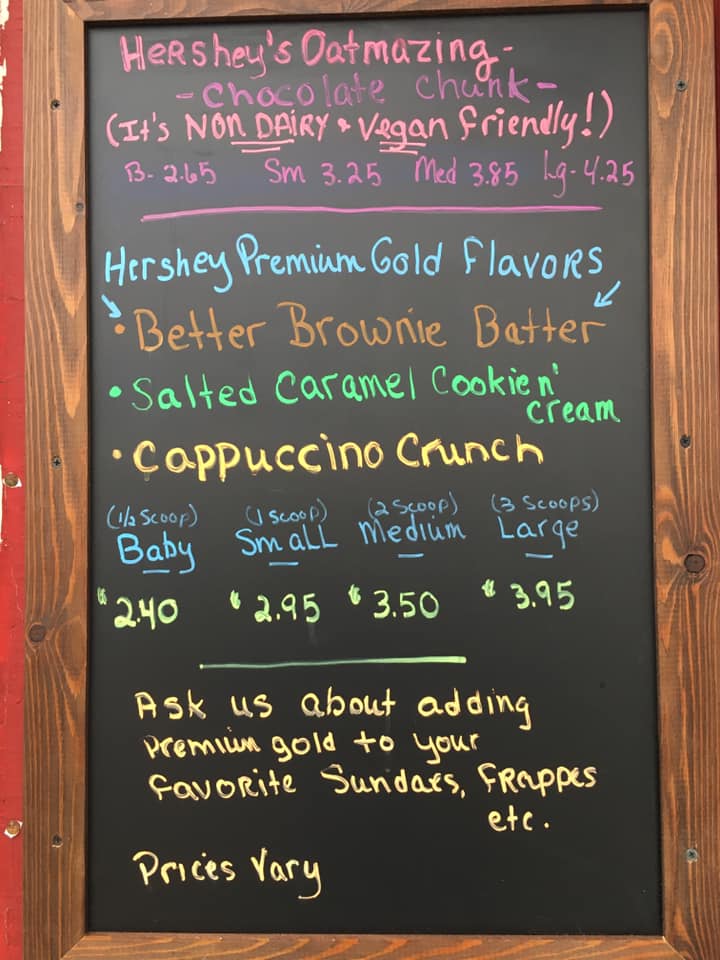 Hershey's Oatmazing-
-Chocolate Chunk-
(It's NON DAIRY & Vegan Friendly!)
B- 2.65 Sm 3.25 Med 3.85 Lg- 4.25
Hershey Premium Gold Flavors
• Better Brownie Batter
• Salted Caramel Cookie n'
Cream
• Cappuccino Crunch
(1/2 Scoop) (1 Scoop) (2 Scoop) (3 Scoops)
Baby Small Medium Large
$2.40 $2.95 $3.50 $3.95
Ask us about adding
Premium gold to your
favorite Sundaes, Frappes
etc.
Prices Vary